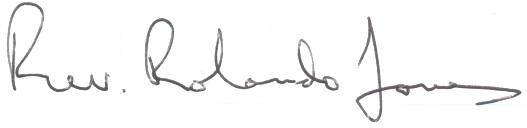 Rev. Rolando Jones